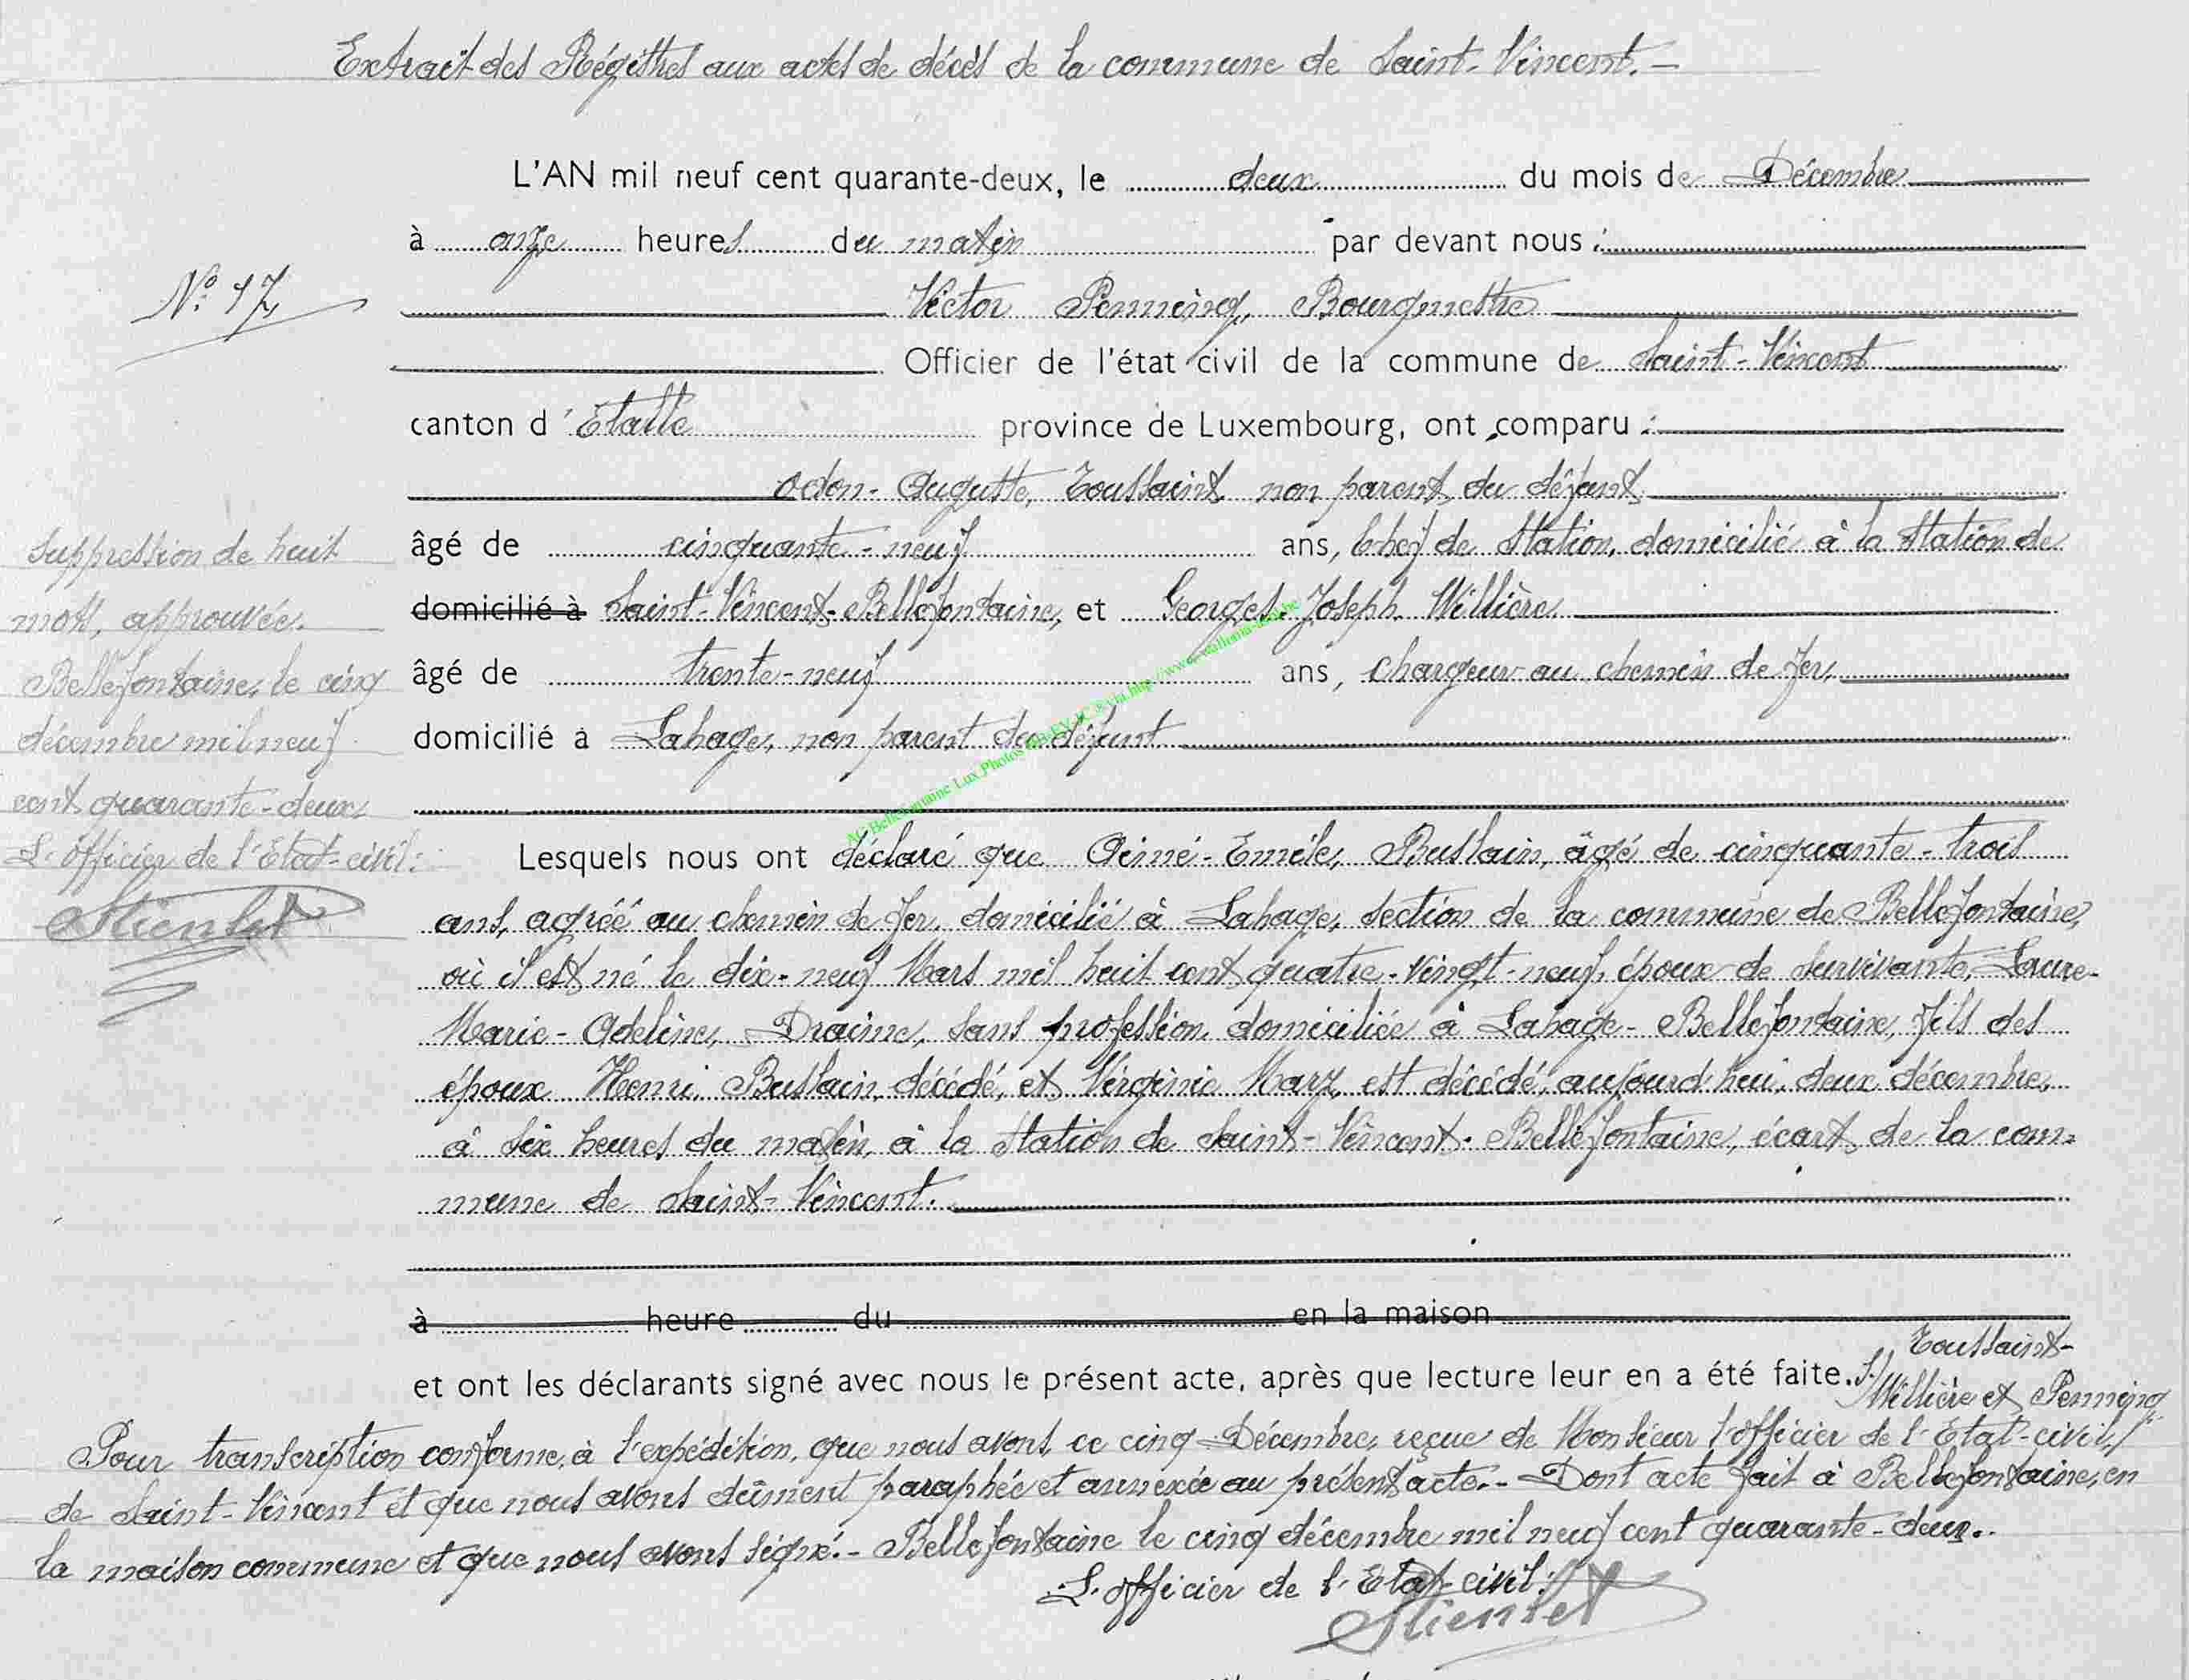 Extrait des Régistres aux actes de décès de la commune de Saint-Vincent.-
L'AN mil neuf cent quarante-deux, le deux du mois de Décembre
à onze heures du matin par devant nous :
N° 17
Victor Penning, Bourgmestre
Officier de l'état civil de la commune de Saint-Vincent
canton d'Etalle province de Luxembourg, ont comparu :
Odon-Auguste, Toussaint non parent du défunt,
âgé de cinquante-neuf ans, Chef de Station, domicilié à la Station de
domicilié à Saint-Vincent-Bellefontaine, et Georges-Joseph, Willière
âgé de trente-neuf ans, chargeur au chemin de fer,
domicilié à Lahage, non parent du défunt
Suppression de huit
mots, approuvée.
Bellefontaine, le cinq
décembre mil neuf
cent quarante-deux
L'officier de l'Etat-civil :
Lesquels nous ont déclaré que Aimé-Emile, Buslain, âgé de cinquante-trois
ans, agréé au chemin de fer, domicilié à Lahage, section de la commune de Bellefontaine,
où il est né le dix-neuf Mars mil huit cent quatre-vingt-neuf, époux de survivante, Laure-
Marie-Adeline, Draime, sans profession, domiciliée à Lahage-Bellefontaine, fils des
époux Henri, Buslain, décédé, et Virginie Marz, est décédé, aujourd'hui, deux décembre,
à six heures du matin, à la Station de Saint-Vincent-Bellefontaine, écart de la com-
mune de Saint-Vincent.
à heure du en la maison
et ont les déclarants signé avec nous le présent acte, après que lecture leur en a été faite. S/ Toussaint-
Willière et Penning
Pour transcription conforme, à l'expédition, que nous avons, ce cinq Décembre, reçue de Monsieur l'officier de l'Etat-civil,
de Saint-Vincent et que nous avons dûment paraphée et annexée au présent acte.- Dont acte fait à Bellefontaine, en
la maison commune et que nous avons signé.- Bellefontaine le cinq décembre mil neuf cent quarante-deux.
L'officier de l'Etat-civil :